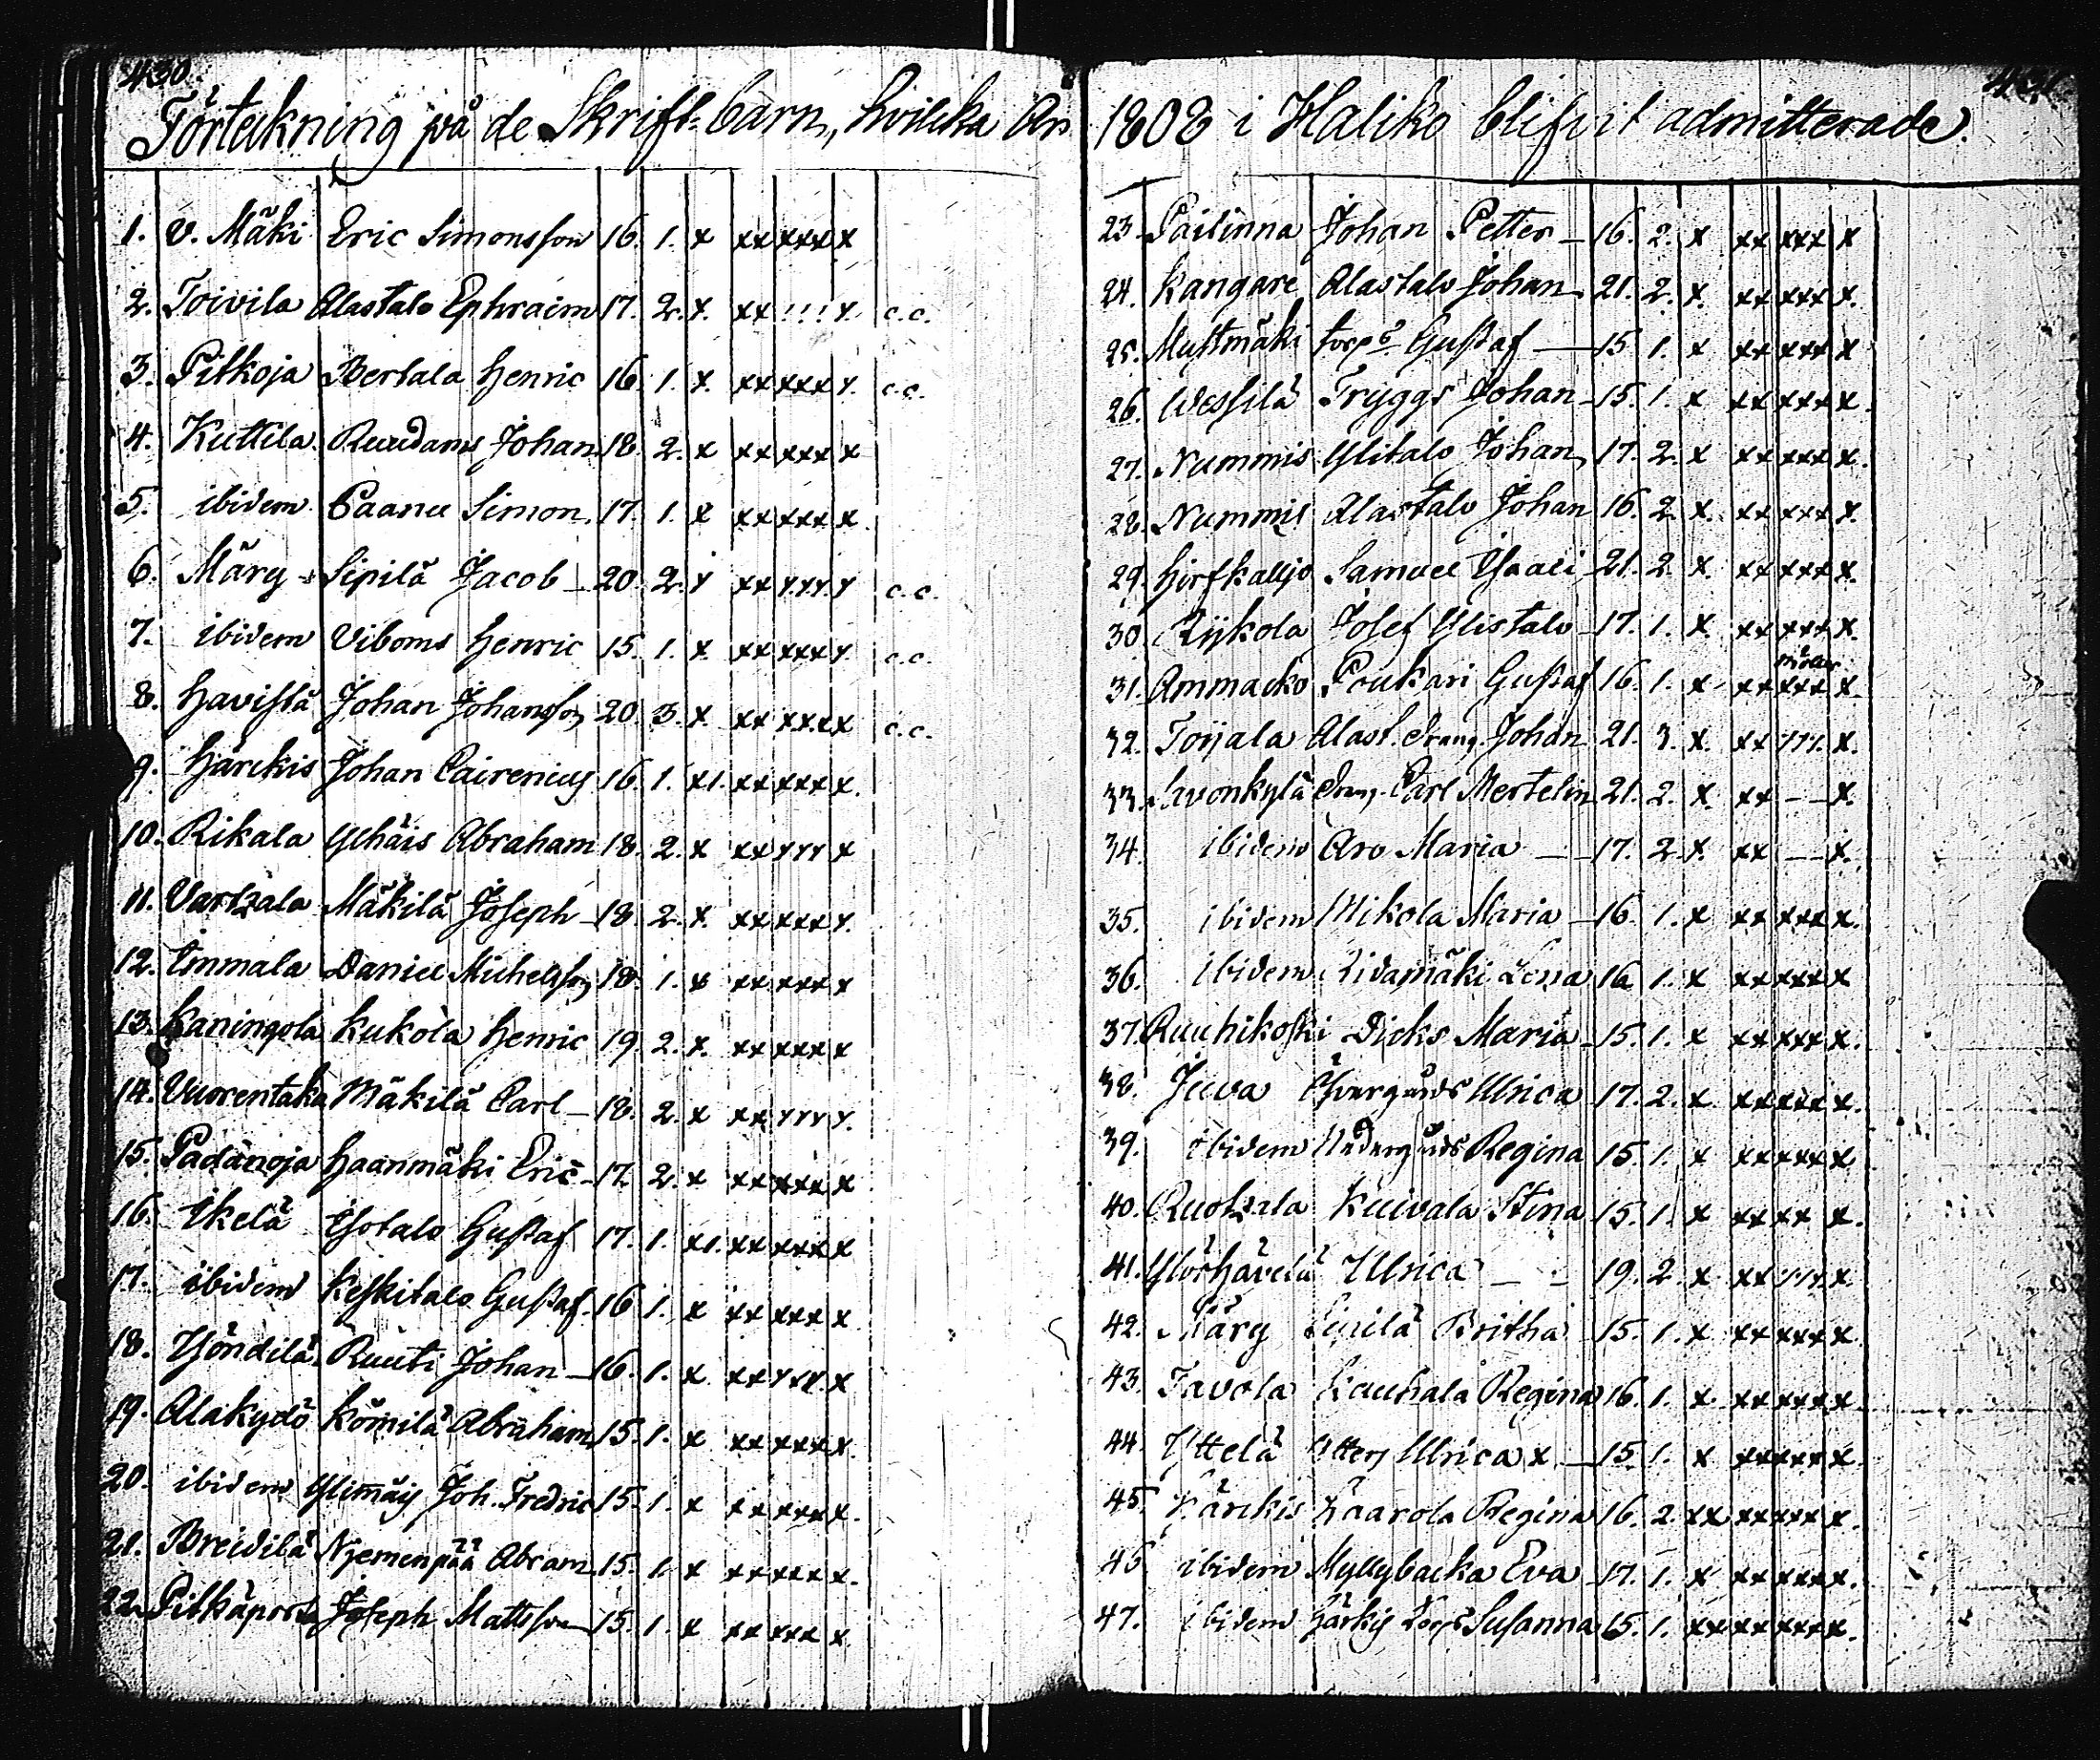 430.
Förtekning på de Skrift-barn, hvilcka År
1. V. Mäki Eric Simonsson 16. 1. x xx xxx x
2. Toivila Alastalo Ephraim 17. 2. x. xx !!! x. c.c.
3. Pitkoja Bertala Henric 16. 1. x. xx xxx x. c.c.
4. Kuttila Ruudams Johan 18. 2. x xx xxx x
5. ibidem Paanu Simon 17. 1. x xx xxx x.
6. Märy Sipilä Jacob 20. 2. x xx xxx x c.c.
7. ibidem Viboms Henric 15. 1. x. xx xxx x. c.c.
8. Havistä Johan Johansson 20. 3. x. xx xxx x c.c.
9. Härckis Johan Cairenius 16. 1. x1. xx xxx x.
10. Rikala Ylhäis Abraham 18. 2. x xx xxx x
11. Vartzala Mäkilä Joseph 18. 2. x. xx xxx x.
12. Immala Daniel Michelsson 18. 1. x xx xxx x
13. Kaningola Kukola Henric 19. 2. x. xx xxx x
14. Vuorentaka Mäkilä Carl 18. 2. x xx xxx x.
15. Padanoja Haanmäki Eric 17. 2. x xx xxx x
16. Ikelä Isotalo Gustaf 17. 1. x1. xx xxx x
17. ibidem Keskitalo Gustaf 16 1. x xx xxx x
18. Yöndilä Ruuti Johan 16. 1. x xx xxx x
19. Alakydö Kömilä Abraham 15. 1. x xx xxx x.
20. ibidem Ylimäis Joh. Fredric 15. 1. x xx xxx x.
21. Breidilä Njemenpää Abram 15. 1. x xx xxx x.
22. Pitkäporta Joseph Mattsson 15. 1. x xx xxx x.
431
1808 i Haliko blifvit admitterade.
23. Pailinna Johan Petter 16. 2. x xx xxx x
24. Kangare Alastalo Johan 21. 2. x. xx xxx x.
25. Mustmäki torp. Gustaf 15 1. x xx xxx x
26. Wessilä Tryggs Johan 15. 1. x xx xxx x.
27. Nummis Ylitalo Johan 17. 2. x xx xxx x.
28. Nummis Alastalo Johan 16. 2. x. xx xxx x.
29. Hirfkalljo Samuel Isaci 21. 2. x. xx xxx x.
30. Rijkola Josef Ylistalo 17. 1. x. xx xxx x.
31. Ammacko Poukari Gustaf 16. 1. x xx xxx x.
32. Toijala Alast. Drang Johan 21. 3. x. xx xxx x.
33. Drang. Carl Mertelin 21. 2. x. xx – – x.
34. ibidem Aro Maria 17. 2. x. xx – – x.
35. ibidem Mikola Maria 16. 1. x xx xxx x.
36. ibidem Ridamäki Lena 16 1. x xx xxx x
37. Ruuhikoski Dicks Maria 15. 1. x xx xxx x.
38. Juva Öfvergårds Ulrica 17. 2. x xx xxx x.
39. ibidem Nedergårds Regina 15. 1. x xx xxx x.
40. Ruotzala Kuivala Stina 15. 1. x xx xx x.
41. Ylörhävelä Ulrica 19. 2 x xx xxx x.
42. Märy Sipilä Britha 15. 1. x xx xxx x.
43. Tavola Kauhala Regina 16. 1. x. xx xxx x.
44. Yttelä Ulrica x 15. 1. x xx xxx x.
45. Härckis Kaarola Regina 16. 2. xx xx xxx x.
46 ibidem Myllybacka Eva 17. 1. x xx xxx x.
47. ibidem Härkis Susanna 15. 1. xx xx xxx x.